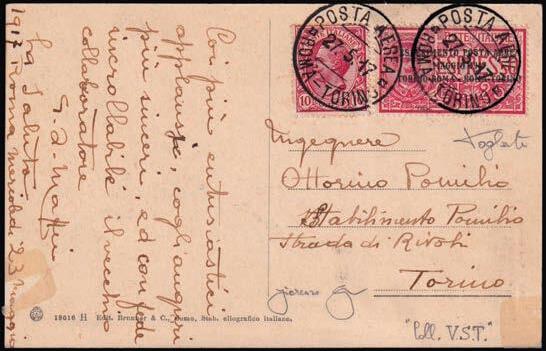 Coi più entusiastici
applausi, cogli auguri
più sinceri, ed con fede
incrollabile il vecchio
collaboratore
G. A. Maffei
La Saluta
1917 Roma mercoledì 23 maggio
POSTA AEREA
ROMA-TORINO
27.5.17
10
POSTA AEREA
ROMA-TORINO
ESPERIMENTO POSTA AEREA
MAGGIO 1917
TORINO-ROMA · ROMA-TORINO
Ingegnere
Ottorino Pomilio
Stabilimento Pomilio
Strada di Rivoli
Torino
"Coll. V.S.T."
19016 H Edit. Brunner & C., Como, Stab. eliografico italiano.